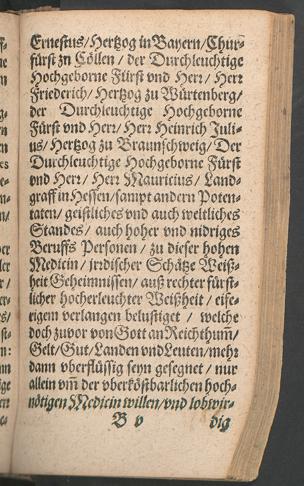 Ernestus/Hertzog in Bayern/Chur-
fürst zu Cöllen/ der Durchleuchtige
Hochgeborne Fürst vnd Herr/ Herr
Friederich/ Hertzog zu Würtenberg/
der Durchleuchtige Hochgeborne
Fürst vnd Herr/ Herr Heinrich Juli-
us/ Hertzog zu Braunschweig/ Der
Durchleuchtige Hochgeborne Fürst
vnd Herr/ Herr Mauricius/ Land-
graff in Hessen/sampt andern Poten-
taten/ geistliches vnd auch weltliches
Standes/ auch hoher vnd nidriges
Beruffs Personen/ zu dieser hohen
Medicin/ jrrdischer Schätze Weiß-
heit Geheimnissen/ auß rechter fürst-
licher hocherleuchter Weißheit/ eife-
rigem verlangen belustiget/ welche
doch zuvor von Gott an Reichthum̃/
Gelt/Gut/Landen vnd Leuten/mehr
dann vberflüssig seyn gesegnet/ nur
allein vm̃ der vberköstbarlichen hoch-
nötigen Medicin willen/vnd lobwir-
B v dig